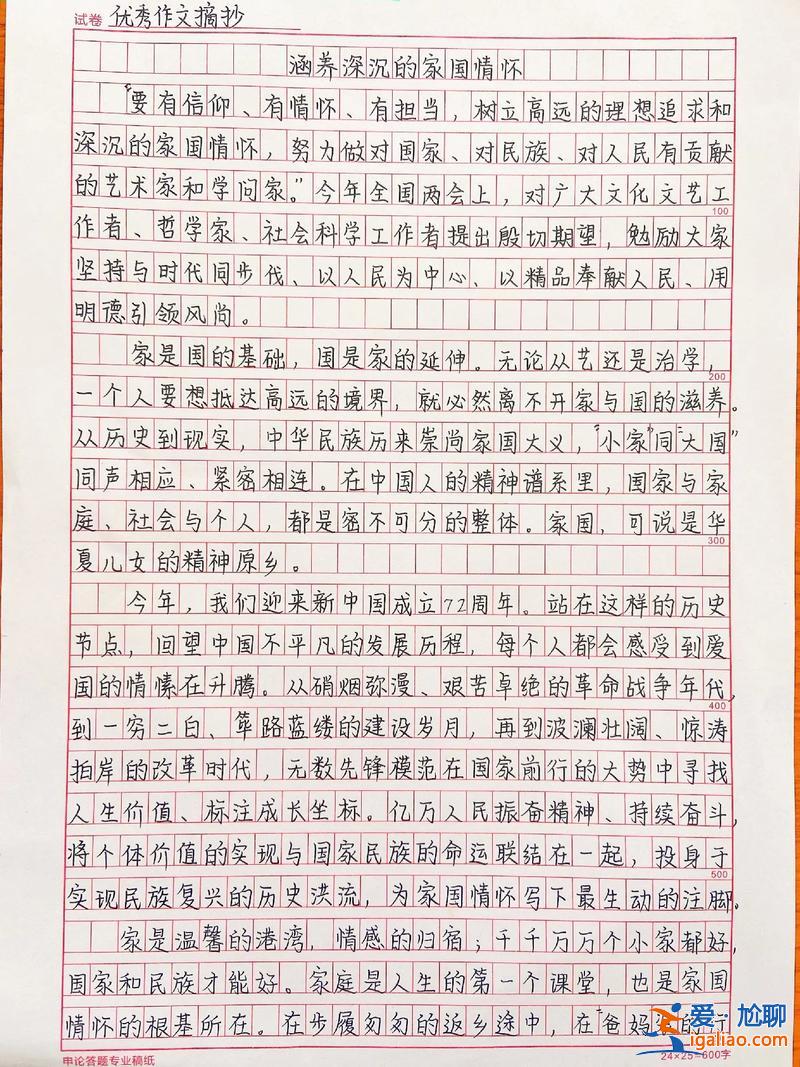 试卷 优秀作文摘抄
涵养深沉的家国情怀
“要有信仰、有情怀、有担当，树立高远的理想追求和
深沉的家国情怀，努力做对国家、对民族、对人民有贡献
的艺术家和学问家。”今年全国两会上，对广大文化文艺工
100
作者、哲学家、社会科学工作者提出殷切期望，勉励大家
坚持与时代同步伐、以人民为中心、以精品奉献人民、用
明德引领风尚。
家是国的基础，国是家的延伸。无论从艺还是治学，
200
一个人要想抵达高远的境界，就必然离不开家与国的滋养。
从历史到现实，中华民族历来崇尚家国大义，“小家”同“大国”
同声相应、紧密相连。在中国人的精神谱系里，国家与家
庭、社会与个人，都是密不可分的整体。家国，可说是华
300
夏儿女的精神原乡。
今年，我们迎来新中国成立72周年。站在这样的历史
节点，回望中国不平凡的发展历程，每个人都会感受到爱
国的情愫在升腾。从硝烟弥漫、艰苦卓绝的革命战争年代，
400
到一穷二白、筚路蓝缕的建设岁月，再到波澜壮阔、惊涛
拍岸的改革时代，无数先锋模范在国家前行的大势中寻找
人生价值、标注成长坐标。亿万人民振奋精神、持续奋斗，
将个体价值的实现与国家民族的命运联结在一起，投身于
500
实现民族复兴的历史洪流，为家国情怀写下最生动的注脚。
家是温馨的港湾，情感的归宿；千千万万个小家都好，
国家和民族才能好。家庭是人生的第一个课堂，也是家国
情怀的根基所在。在步履匆匆的返乡途中，在“爸妈
申论答题专业稿纸
24×25=600字
爱·尬聊
igaliao.com